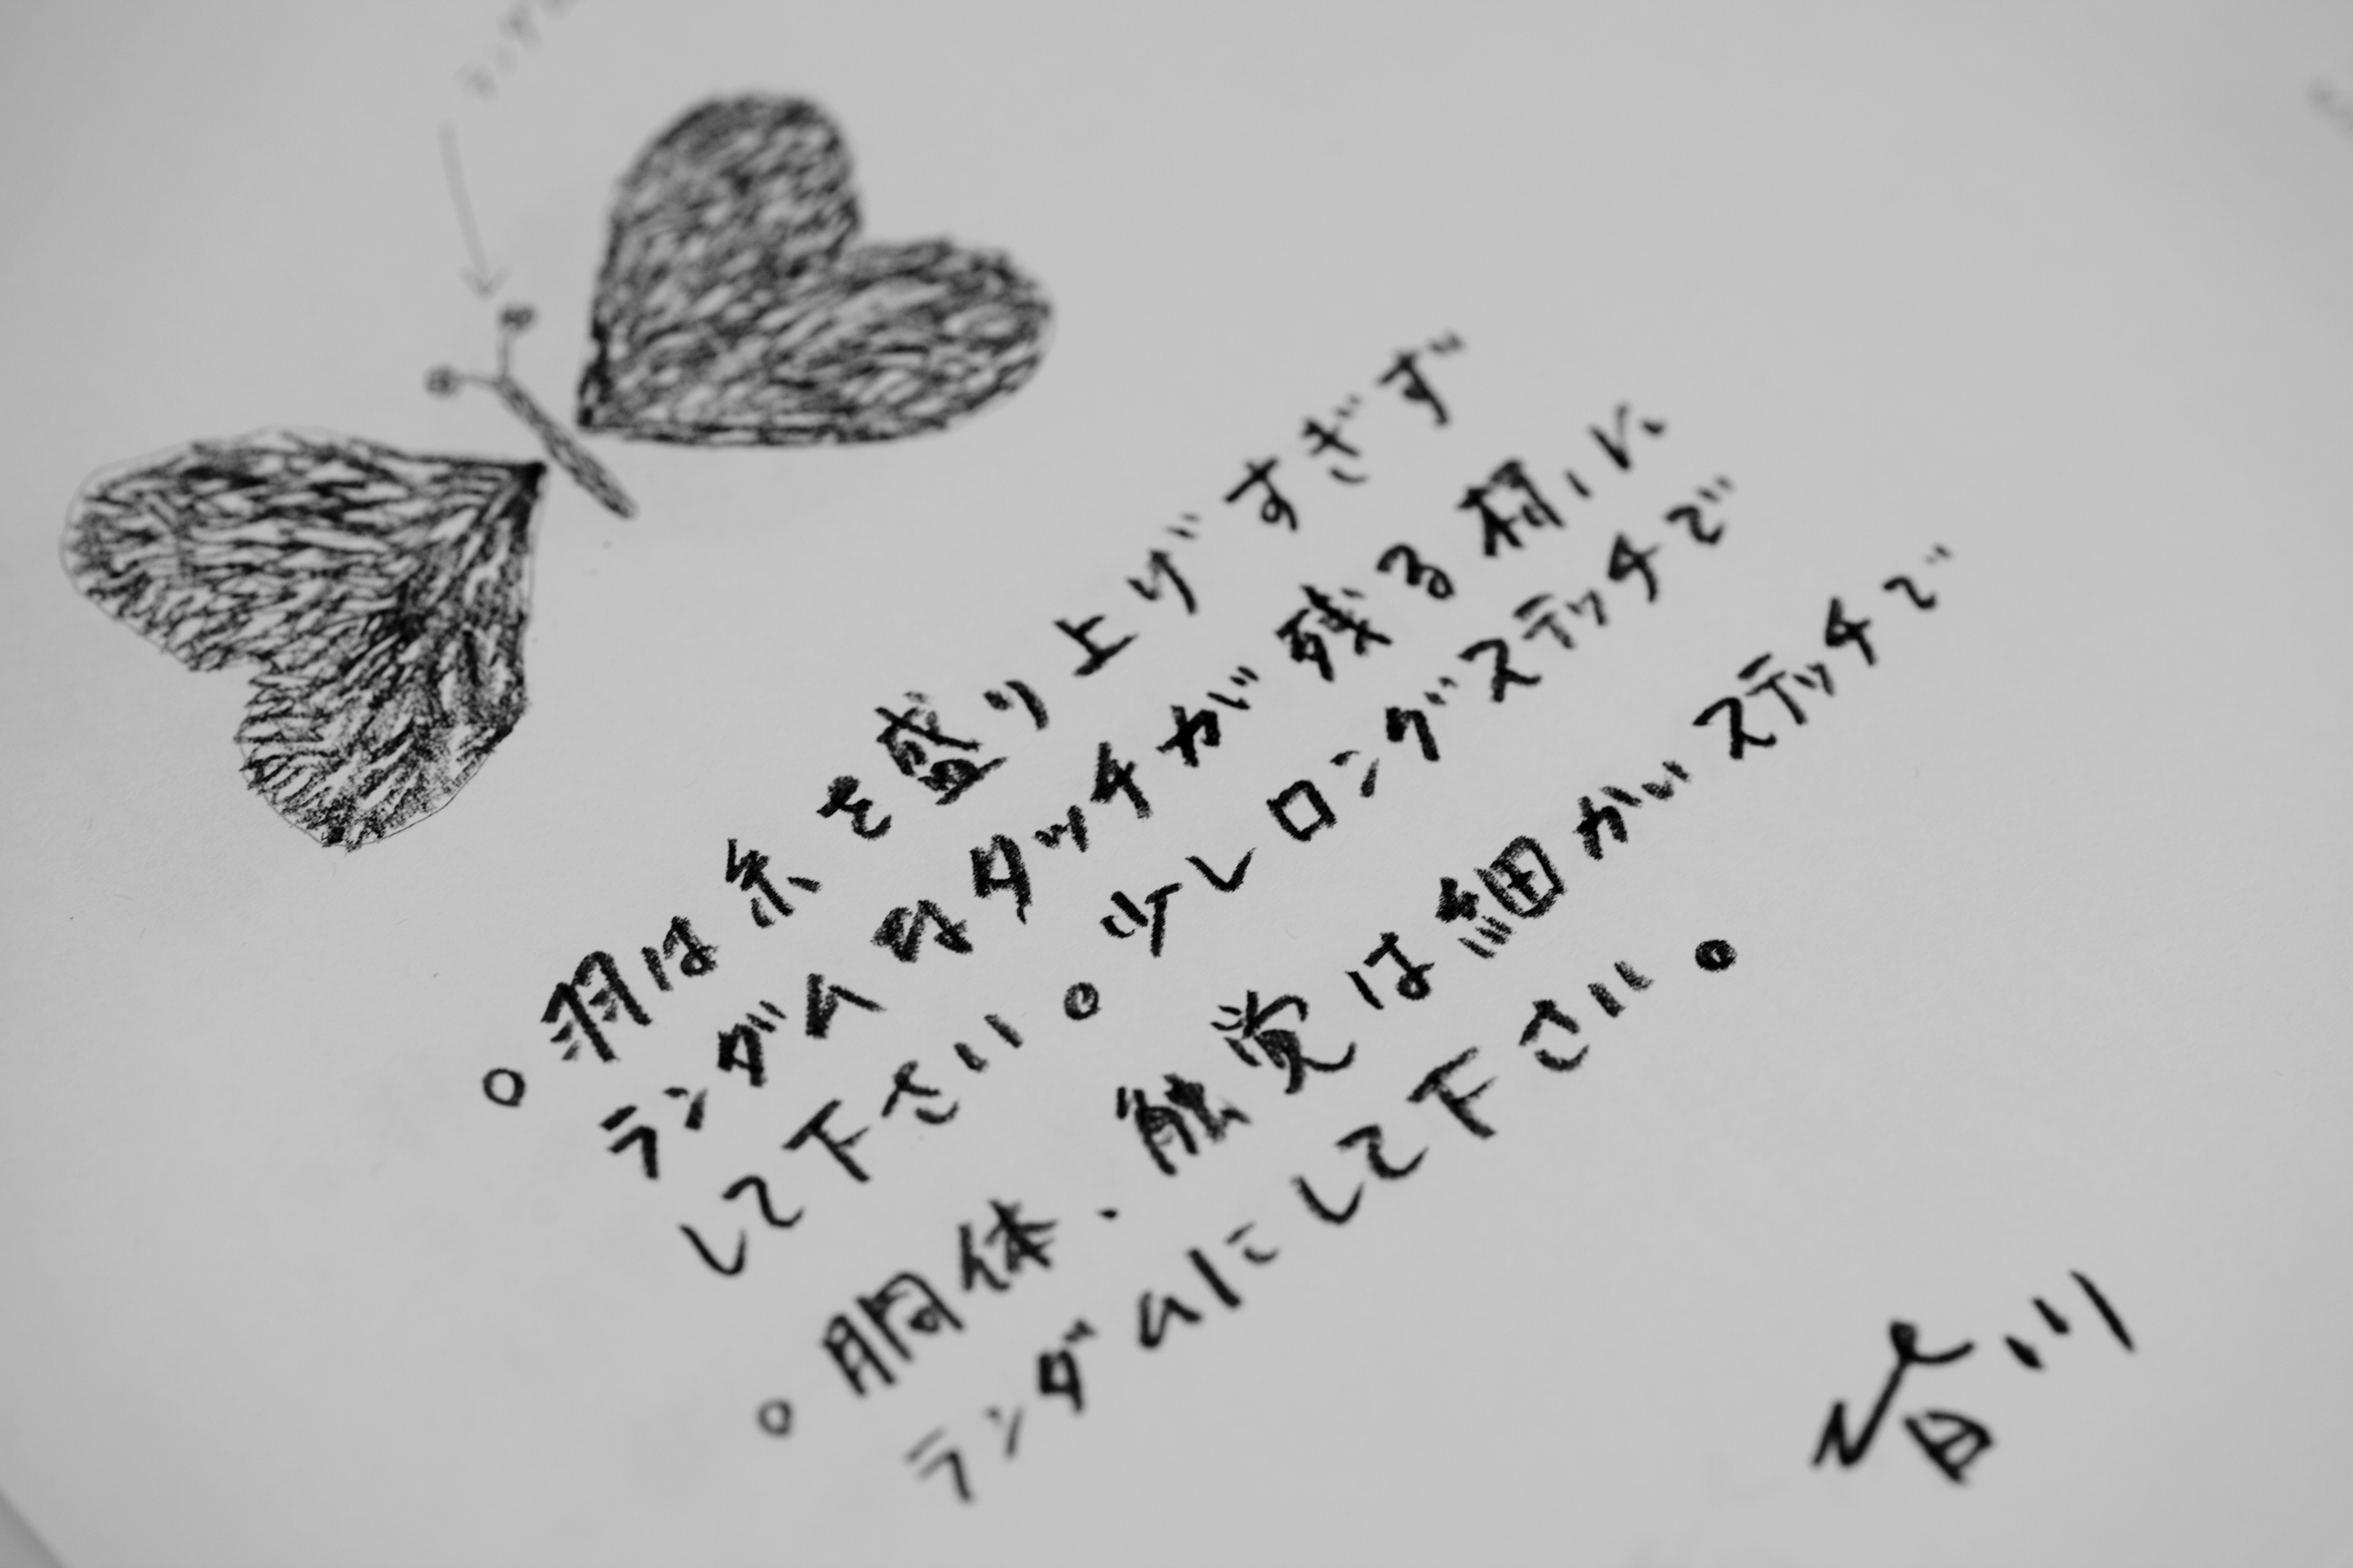 。羽は糸を盛り上げすぎず
ランダムなタッチが残る様に
して下さい。少しロングステッチで
。胴体・触覚は細かいステッチで
ランダムにして下さい。
皆川